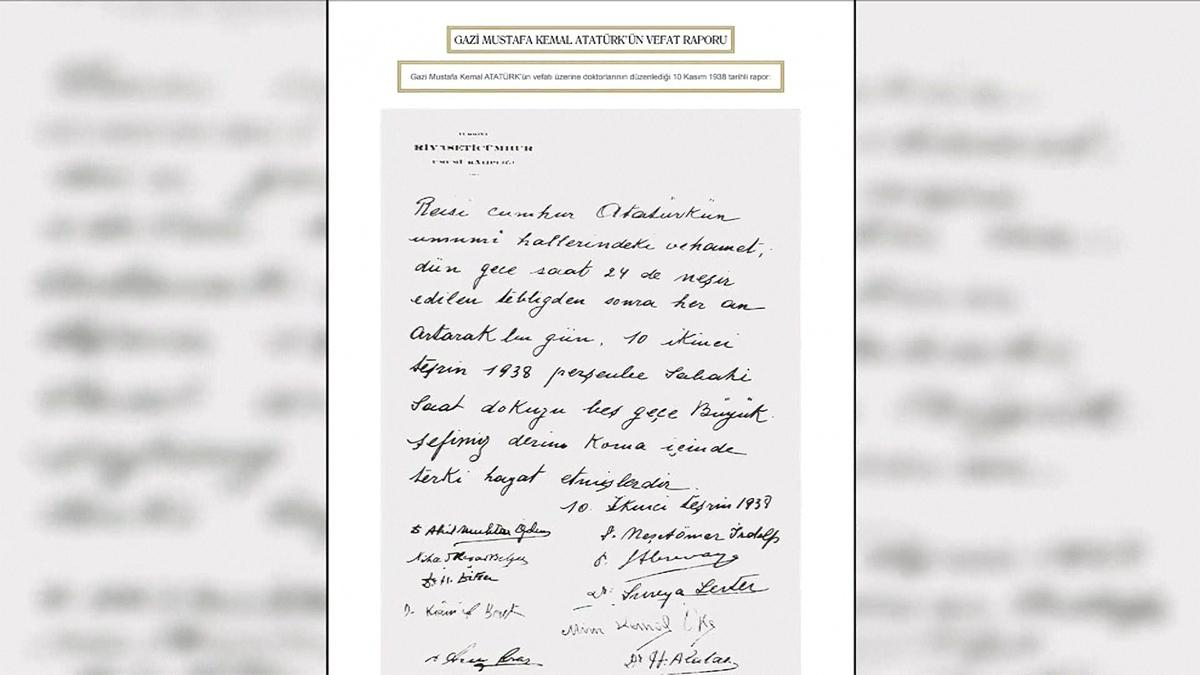 GAZİ MUSTAFA KEMAL ATATÜRK'ÜN VEFAT RAPORU
Gazi Mustafa Kemal ATATÜRK'ün vefatı üzerine doktorlarının düzenlediği 10 Kasım 1938 tarihli rapor:
RİYASETİCÜMHUR
Reisi cumhur Atatürkün
umumî hallerindeki vehamet,
dün gece saat 24 de neşir
edilen tebligden sonra her an
artarak bu gün, 10 ikinci
teşrin 1938 perşenbe sabahi
saat dokuzu beş geçe Büyük
şefimiz derin koma içinde
terki hayat etmişlerdir.
10. İkinci teşrin 1938
Dr Akil Muhtar Özden
P. Neşet Ömer İrdelp
Dr. Süreya Serter
Mim Kemal Öke
Dr H. Alataş